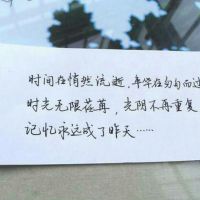 时间在悄然流逝，年华在匆匆而过
时光无限荏苒，光阴不再重复
记忆永远成了昨天……